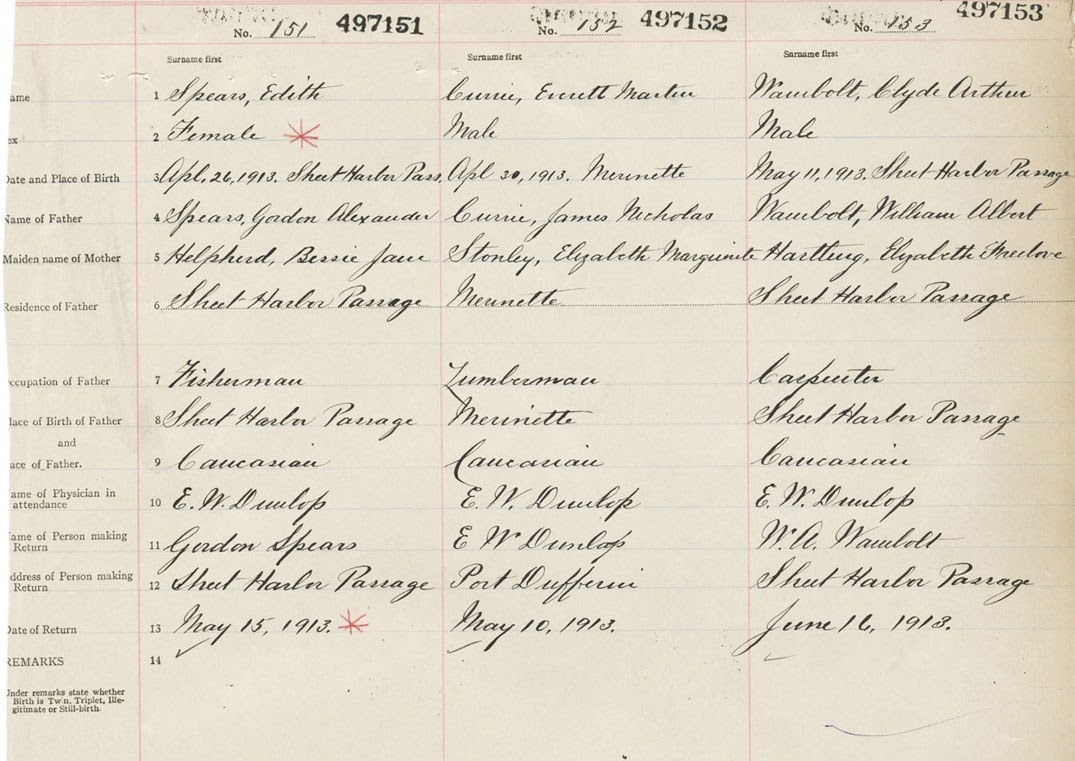 No. 151 497151 No. 152 497152 No. 153 497153
Surname first Surname first Surname first
ame 1 Spears, Edith Currie, Everett Martin Wambolt, Clyde Arthur
ex 2 Female Male Male
Date and Place of Birth 3 Apl. 26, 1913. Sheet Harbor Pass. Apl 30, 1913. Merinette May 11, 1913. Sheet Harbor Passage
Name of Father 4 Spears, Gordon Alexander Currie, James Nicholas Wambolt, William Albert
Maiden name of Mother 5 Helpherd, Bessie Jane Stonley, Elizabeth Marguerite Hartling, Elizabeth Freelove
Residence of Father 6 Sheet Harbor Passage Merinette Sheet Harbor Passage
ccupation of Father 7 Fisherman Lumberman Carpenter
lace of Birth of Father 8 Sheet Harbor Passage Merinette Sheet Harbor Passage
and
ace of Father. 9 Caucasian Caucasian Caucasian
ame of Physician in
attendance 10 E. W. Dunlop E. W. Dunlop E. W. Dunlop
ame of Person making
Return 11 Gordon Spears E W Dunlop W. A. Wambolt
ddress of Person making
Return 12 Sheet Harbor Passage Port Dufferin Sheet Harbor Passage
Date of Return 13 May 15, 1913. May 10, 1913. June 16, 1913.
REMARKS 14
Under remarks state whether
Birth is Twin, Triplet, Ille-
gitimate or Still-birth.